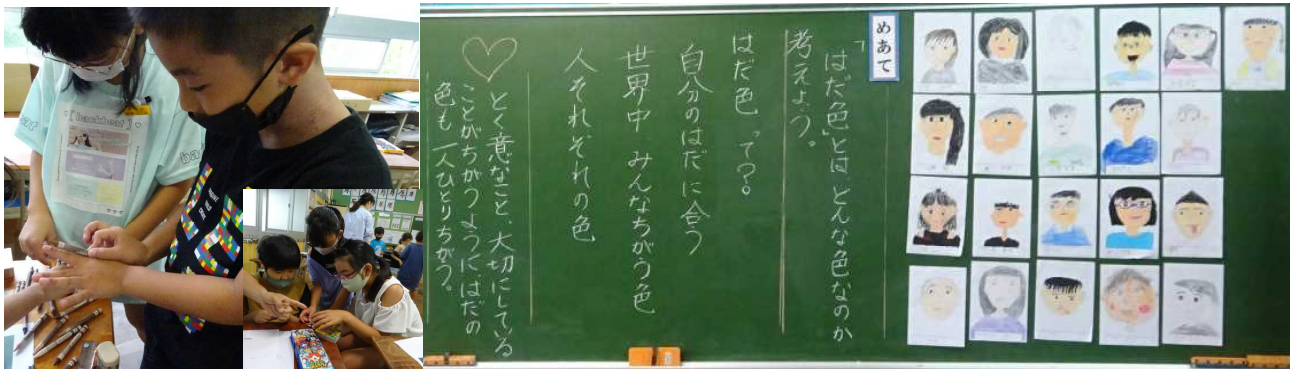 めあて
「はだ色」とは どんな色なのか
考えよう。
はだ色 って？
自分のはだに合う
世界中 みんなちがう色
人それぞれの色
とく意なこと、大切にしている
ことがちがうように、はだの
色も 一人ひとりちがう。
[ backbeat ]